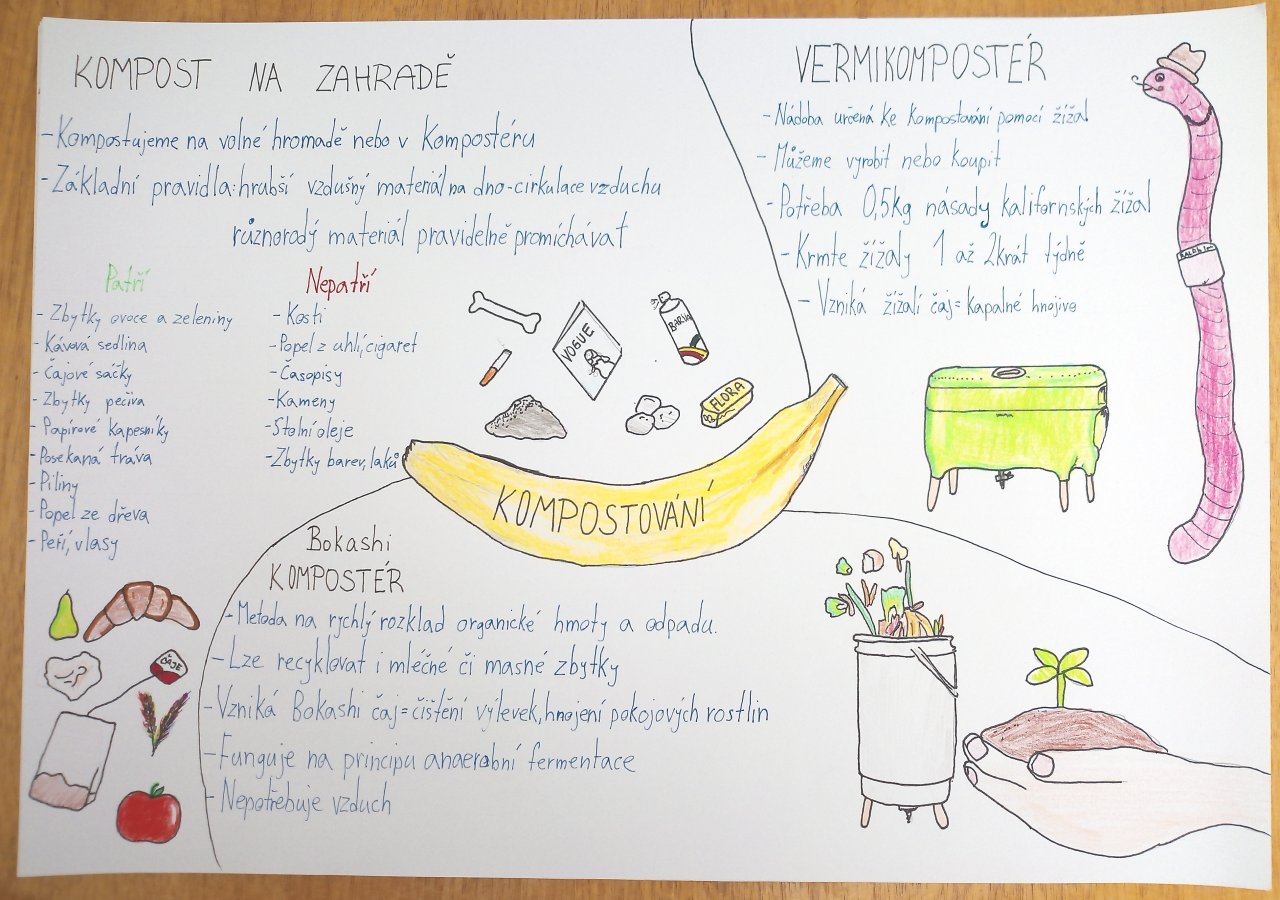 KOMPOST NA ZAHRADĚ
-Kompostujeme na volné hromadě nebo v Kompostéru
-Základní pravidla: hrubší vzdušný materiál na dno-cirkulace vzduchu
různorodý materiál pravidelně promíchávat
Patří
- Zbytky ovoce a zeleniny
- Kávová sedlina
- Čajové sáčky
- Zbytky pečiva
- Papírové kapesníky
- Posekaná tráva
- Piliny
- Popel ze dřeva
- Peří, vlasy
Nepatří
- Kosti
-Popel z uhlí, cigaret
- Časopisy
-Kameny
-Stolní oleje
-Zbytky barev, laků
VOGUE
BARVA
FLORA
ČAJE
KOMPOSTOVÁNÍ
VERMIKOMPOSTÉR
-Nádoba určená ke Kompostování pomocí žížal
- Můžeme vyrobit nebo koupit
-Potřeba 0,5kg násady kalifornských žížal
-Krmte žížaly 1 až 2krát týdně
- Vzniká žížalí čaj= Kapalné hnojivo
Bokashi
KOMPOSTÉR
-Metoda na rychlý rozklad organické hmoty a odpadu.
-Lze recyklovat i mléčné či masné zbytky
-Vzniká Bokashi čaj=čištění výlevek, hnojení pokojových rostlin
-Funguje na principu anaerobní fermentace
-Nepotřebuje vzduch